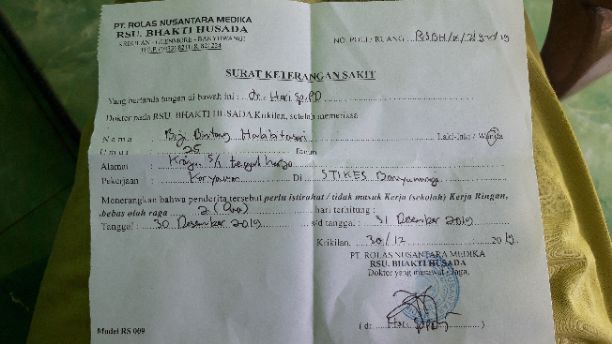 PT. ROLAS NUSANTARA MEDIKA
RSU. BHAKTI HUSADA
KRIKILAN - GLENMORE - BANYUWANGI
NO. POLI / RUANG
SURAT KETERANGAN SAKIT
Yang bertanda tangan di bawah ini : dr. Hari Sp.PD
Dokter pada RSU. BHAKTI HUSADA Krikilan, setelah memeriksa
Nama Bintang Laki-laki / Wanita
Umur 25 Tahun
Alamat : Krajan
Pekerjaan : Karyawan Di STIKES Banyuwangi
Menerangkan bahwa penderita tersebut perlu istirahat / tidak masuk Kerja (sekolah) Kerja Ringan,
bebas olah raga 2 (Dua) hari terhitung :
Tanggal : 30 Desember 2019 s/d tanggal : 31 Desember 2019
Krikilan, 30/12 2019
PT. ROLAS NUSANTARA MEDIKA
RSU. BHAKTI HUSADA
Dokter yang merawat / Jaga,
( dr. Hari Sp.PD )
Model RS 009